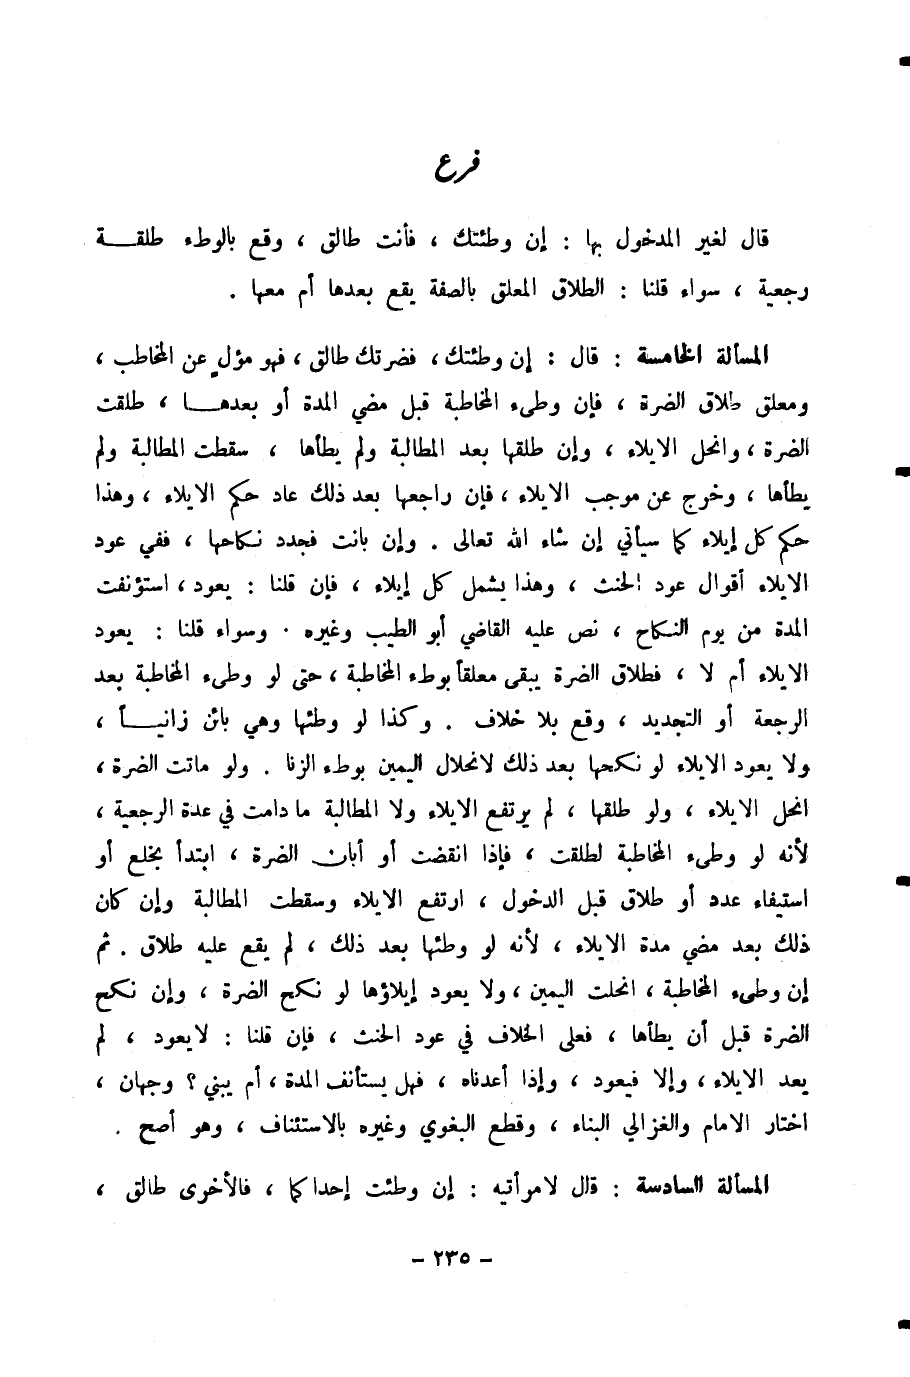 فرع
قال لغير المدخول بها : إن وطئتك ، فأنت طالق ، وقع بالوطء طلقـــة
رجعية ، سواء قلنا : الطلاق المعلق بالصفة يقع بعدها أم معها .
المسألة الخامسة : قال : إن وطئتك ، فضرتك طالق ، فهو مؤلٍ عن المخاطب ،
ومعلق طلاق الضرة ، فإن وطىء المخاطبة قبل مضي المدة أو بعدهـــا ، طلقت
الضرة ، وانحل الايلاء ، وإن طلقها بعد المطالبة ولم يطأها ، سقطت المطالبة ولم
يطأها ، وخرج عن موجب الايلاء ، فإن راجعها بعد ذلك عاد حكم الايلاء ، وهذا
حكم كل إيلاء كما سيأتي إن شاء الله تعالى . وإن بانت فجدد نكاحها ، ففي عود
الايلاء أقوال عود الحنث ، وهذا يشمل كل إيلاء ، فإن قلنا : يعود ، استؤنفت
المدة من يوم النكاح ، نص عليه القاضي أبو الطيب وغيره . وسواء قلنا : يعود
الايلاء أم لا ، فطلاق الضرة يبقى معلقاً بوطء المخاطبة ، حتى لو وطىء المخاطبة بعد
الرجعة أو التجديد ، وقع بلا خلاف . وكذا لو وطئها وهي بائن زانيـــاً ،
ولا يعود الايلاء لو نكحها بعد ذلك لانحلال اليمين بوطء الزنا . ولو ماتت الضرة ،
انحل الايلاء ، ولو طلقها ، لم يرتفع الايلاء ولا المطالبة ما دامت في عدة الرجعية ،
لأنه لو وطىء المخاطبة لطلقت ، فإذا انقضت أو أبان الضرة ، ابتدأ بخلع أو
استيفاء عدد أو طلاق قبل الدخول ، ارتفع الايلاء وسقطت المطالبة وإن كان
ذلك بعد مضي مدة الايلاء ، لأنه لو وطئها بعد ذلك ، لم يقع عليه طلاق . ثم
إن وطىء المخاطبة ، انحلت اليمين ، ولا يعود إيلاؤها لو نكح الضرة ، وإن نكح
الضرة قبل أن يطأها ، فعلى الخلاف في عود الحنث ، فإن قلنا : لا يعود ، لم
يعد الايلاء ، وإلا فيعود ، وإذا أعدناه ، فهل يستأنف المدة ، أم يبني ؟ وجهان ،
اختار الامام والغزالي البناء ، وقطع البغوي وغيره بالاستئناف ، وهو أصح .
المسألة السادسة : قال لامرأتيه : إن وطئت إحداكما ، فالأخرى طالق ،
- ٢٣٥ -